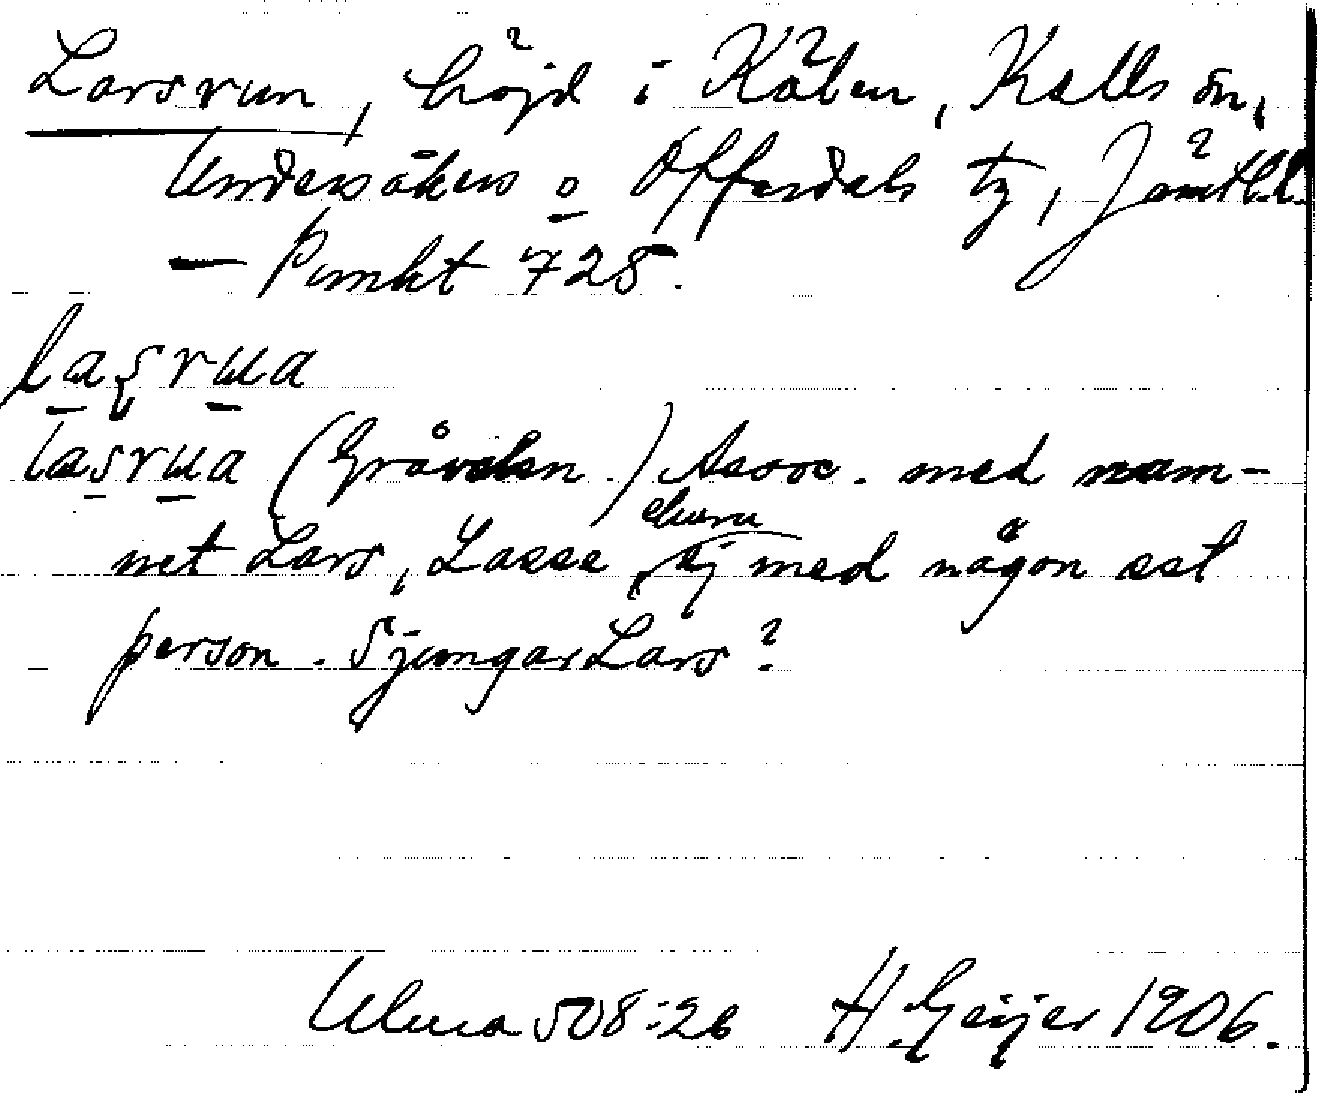 Larsrun, höjd i Kölen, Kalls sn,
Undersåkers o Offerdals tg, Jämtl.l.
— Punkt 728.
lasrua
lasrua (Gråvalen.) Assoc. med nam-
net Lars, Lasse, ehuru ej med någon sst
person. Sjungar Lars?
Ulma 508:26 H. Geijer 1906.